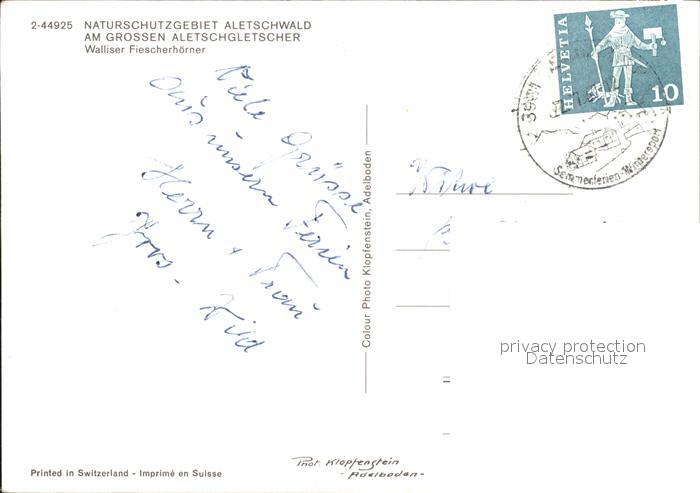 2-44925 NATURSCHUTZGEBIET ALETSCHWALD
AM GROSSEN ALETSCHGLETSCHER
Walliser Fiescherhörner
Viele Grüsse
aus unsern Ferien
Herrn + Frau
Wild
Colour Photo Klopfenstein, Adelboden
HELVETIA
10
Sommerferien-Wintersport
privacy protection
Datenschutz
Phot. Klopfenstein
- Adelboden -
Printed in Switzerland - Imprimé en Suisse